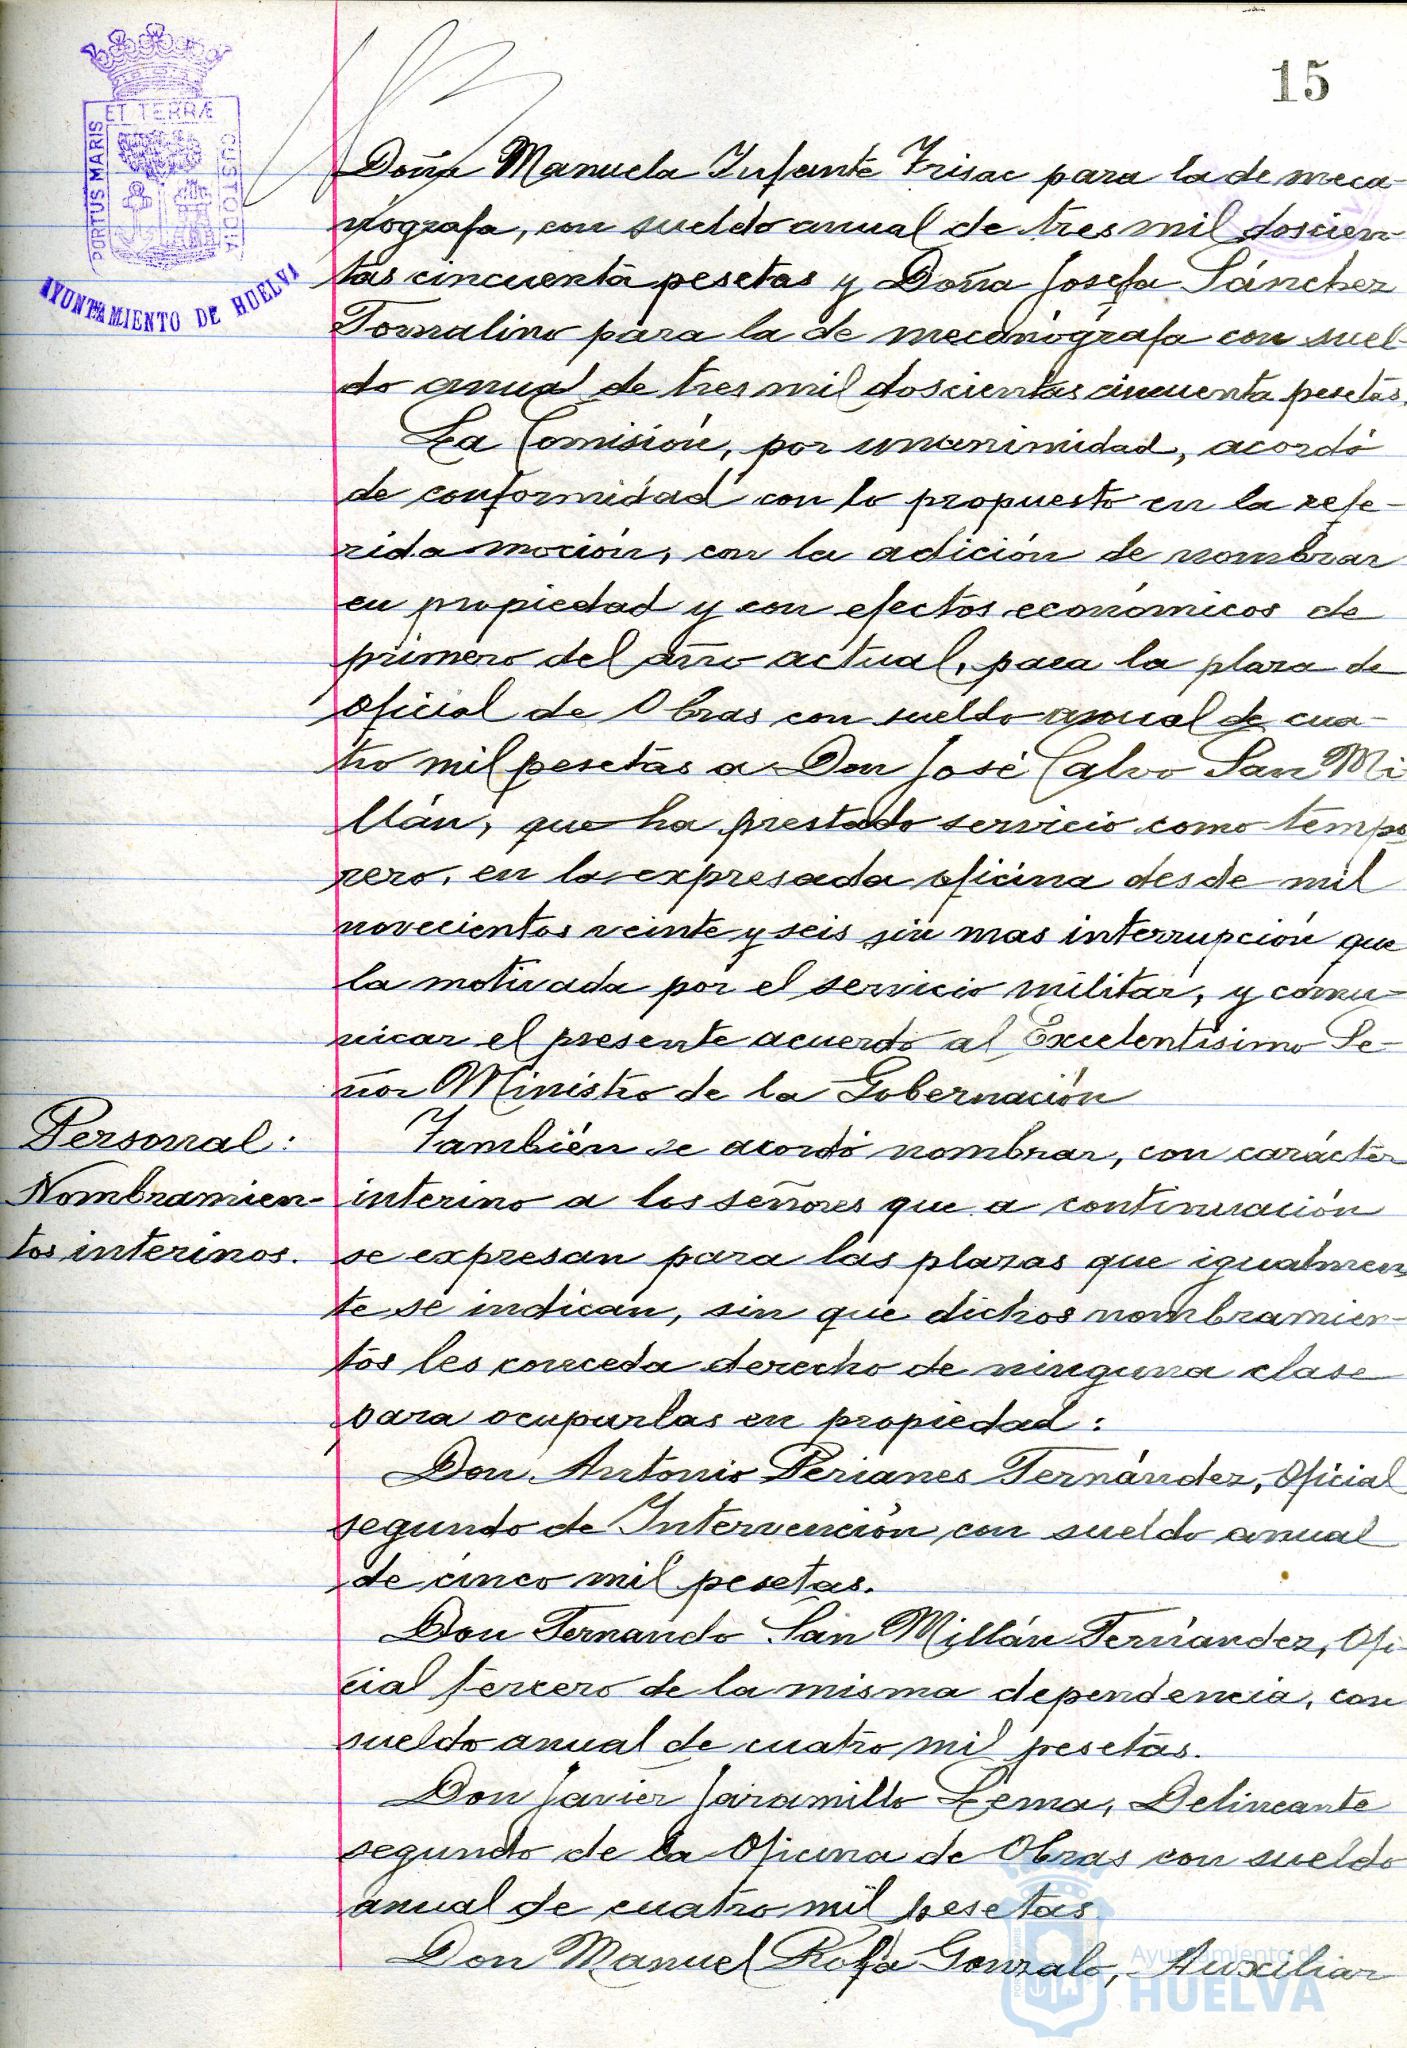 15
ET TERRÆ
PORTUS MARIS
CUSTODIA
AYUNTAMIENTO DE HUELVA
Doña Manuela Infante Trisac para la de meca-
nografa, con sueldo anual de tres mil doscien-
tas cincuenta pesetas y Doña Josefa Sánchez
Tornalino para la de mecanógrafa con suel-
do anual de tres mil doscientas cincuenta pesetas.
La Comisión, por unanimidad, acordó
de conformidad con lo propuesto en la refe-
rida moción, con la adición de nombrar
en propiedad y con efectos económicos de
primero del año actual, para la plaza de
Oficial de Obras con sueldo anual de cua-
tro mil pesetas a Don José Calvo San Mi
llán, que ha prestado servicio como tempo
rero, en la expresada oficina desde mil
novecientos veinte y seis sin mas interrupción que
la motivada por el servicio militar, y comu-
nicar el presente acuerdo al Excelentísimo Se-
ñor Ministro de la Gobernación
Personal:
Nombramien-
tos interinos.
También se acordó nombrar, con carácter
interino a los señores que a continuación
se expresan para las plazas que igualmen
te se indican, sin que dichos nombramien-
tos les conceda derecho de ninguna clase
para ocuparlas en propiedad:
Don Antonio Perianes Fernández, Oficial
segundo de Intervención con sueldo anual
de cinco mil pesetas.
Don Fernando San Millán Fernández, Ofi-
cial tercero de la misma dependencia, con
sueldo anual de cuatro mil pesetas.
Don Javier Jaramillo Lema, Delineante
segundo de la Oficina de Obras con sueldo
anual de cuatro mil pesetas.
Don Manuel Rofa Gonzalo, Auxiliar
Ayuntamiento de
HUELVA